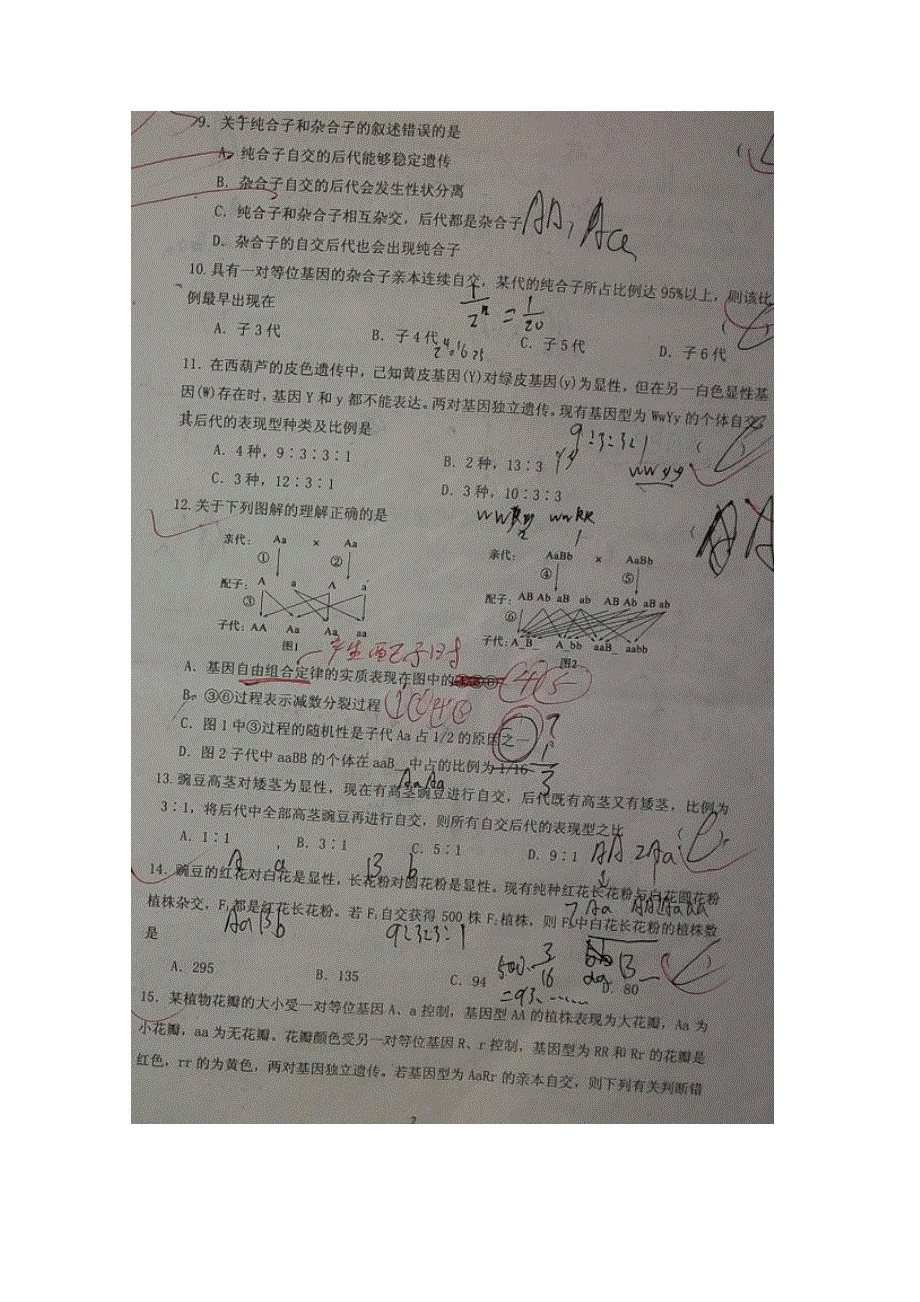 9．关于纯合子和杂合子的叙述错误的是
A．纯合子自交的后代能够稳定遗传
B．杂合子自交的后代会发生性状分离
C．纯合子和杂合子相互杂交，后代都是杂合子
AA, Aa
D．杂合子的自交后代也会出现纯合子
10.具有一对等位基因的杂合子亲本连续自交，某代的纯合子所占比例达 95%以上，则该比
例最早出现在
1/2ⁿ = 1/20
A．子 3 代 B．子 4 代 C．子 5 代 D．子 6 代
11．在西葫芦的皮色遗传中，已知黄皮基因(Y)对绿皮基因(y)为显性，但在另一白色显性基
因(W)存在时，基因 Y 和 y 都不能表达。两对基因独立遗传。现有基因型为 WwYy 的个体自交，
其后代的表现型种类及比例是
9:3:3:1
A．4 种，9∶3∶3∶1 B．2 种，13∶3
wwyy
C．3 种，12∶3∶1 D．3 种，10∶3∶3
12.关于下列图解的理解正确的是
亲代： Aa × Aa
① ②
配子： A a A a
③
子代：AA Aa Aa aa
图1
亲代： AaBb × AaBb
④ ⑤
配子：AB Ab aB ab AB Ab aB ab
⑥
子代：A_B_ A_bb aaB_ aabb
图2
A．基因自由组合定律的实质表现在图中的
④⑤
B．③⑥过程表示减数分裂过程
①②④⑤
C．图 1 中③过程的随机性是子代 Aa 占 1/2 的原因之一
D．图 2 子代中 aaBB 的个体在 aaB__中占的比例为 1/16
1/3
13.豌豆高茎对矮茎为显性，现在有高茎豌豆进行自交，后代既有高茎又有矮茎，比例为
3∶1，将后代中全部高茎豌豆再进行自交，则所有自交后代的表现型之比
A．1∶1 B．3∶1 C．5∶1 D．9∶1
AA 2Aa
A a B b
14．豌豆的红花对白花是显性，长花粉对圆花粉是显性。现有纯种红花长花粉与白花圆花粉
植株杂交，F₁都是红花长花粉。若 F₁自交获得 500 株 F₂植株，则 F₂中白花长花粉的植株数
是
AaBb
9:3:3:1
A．295 B．135 C．94 D．80
500·3/16
=93.……
15．某植物花瓣的大小受一对等位基因 A、a 控制，基因型 AA 的植株表现为大花瓣，Aa 为
小花瓣，aa 为无花瓣。花瓣颜色受另一对等位基因 R、r 控制，基因型为 RR 和 Rr 的花瓣是
红色，rr 的为黄色，两对基因独立遗传。若基因型为 AaRr 的亲本自交，则下列有关判断错
2